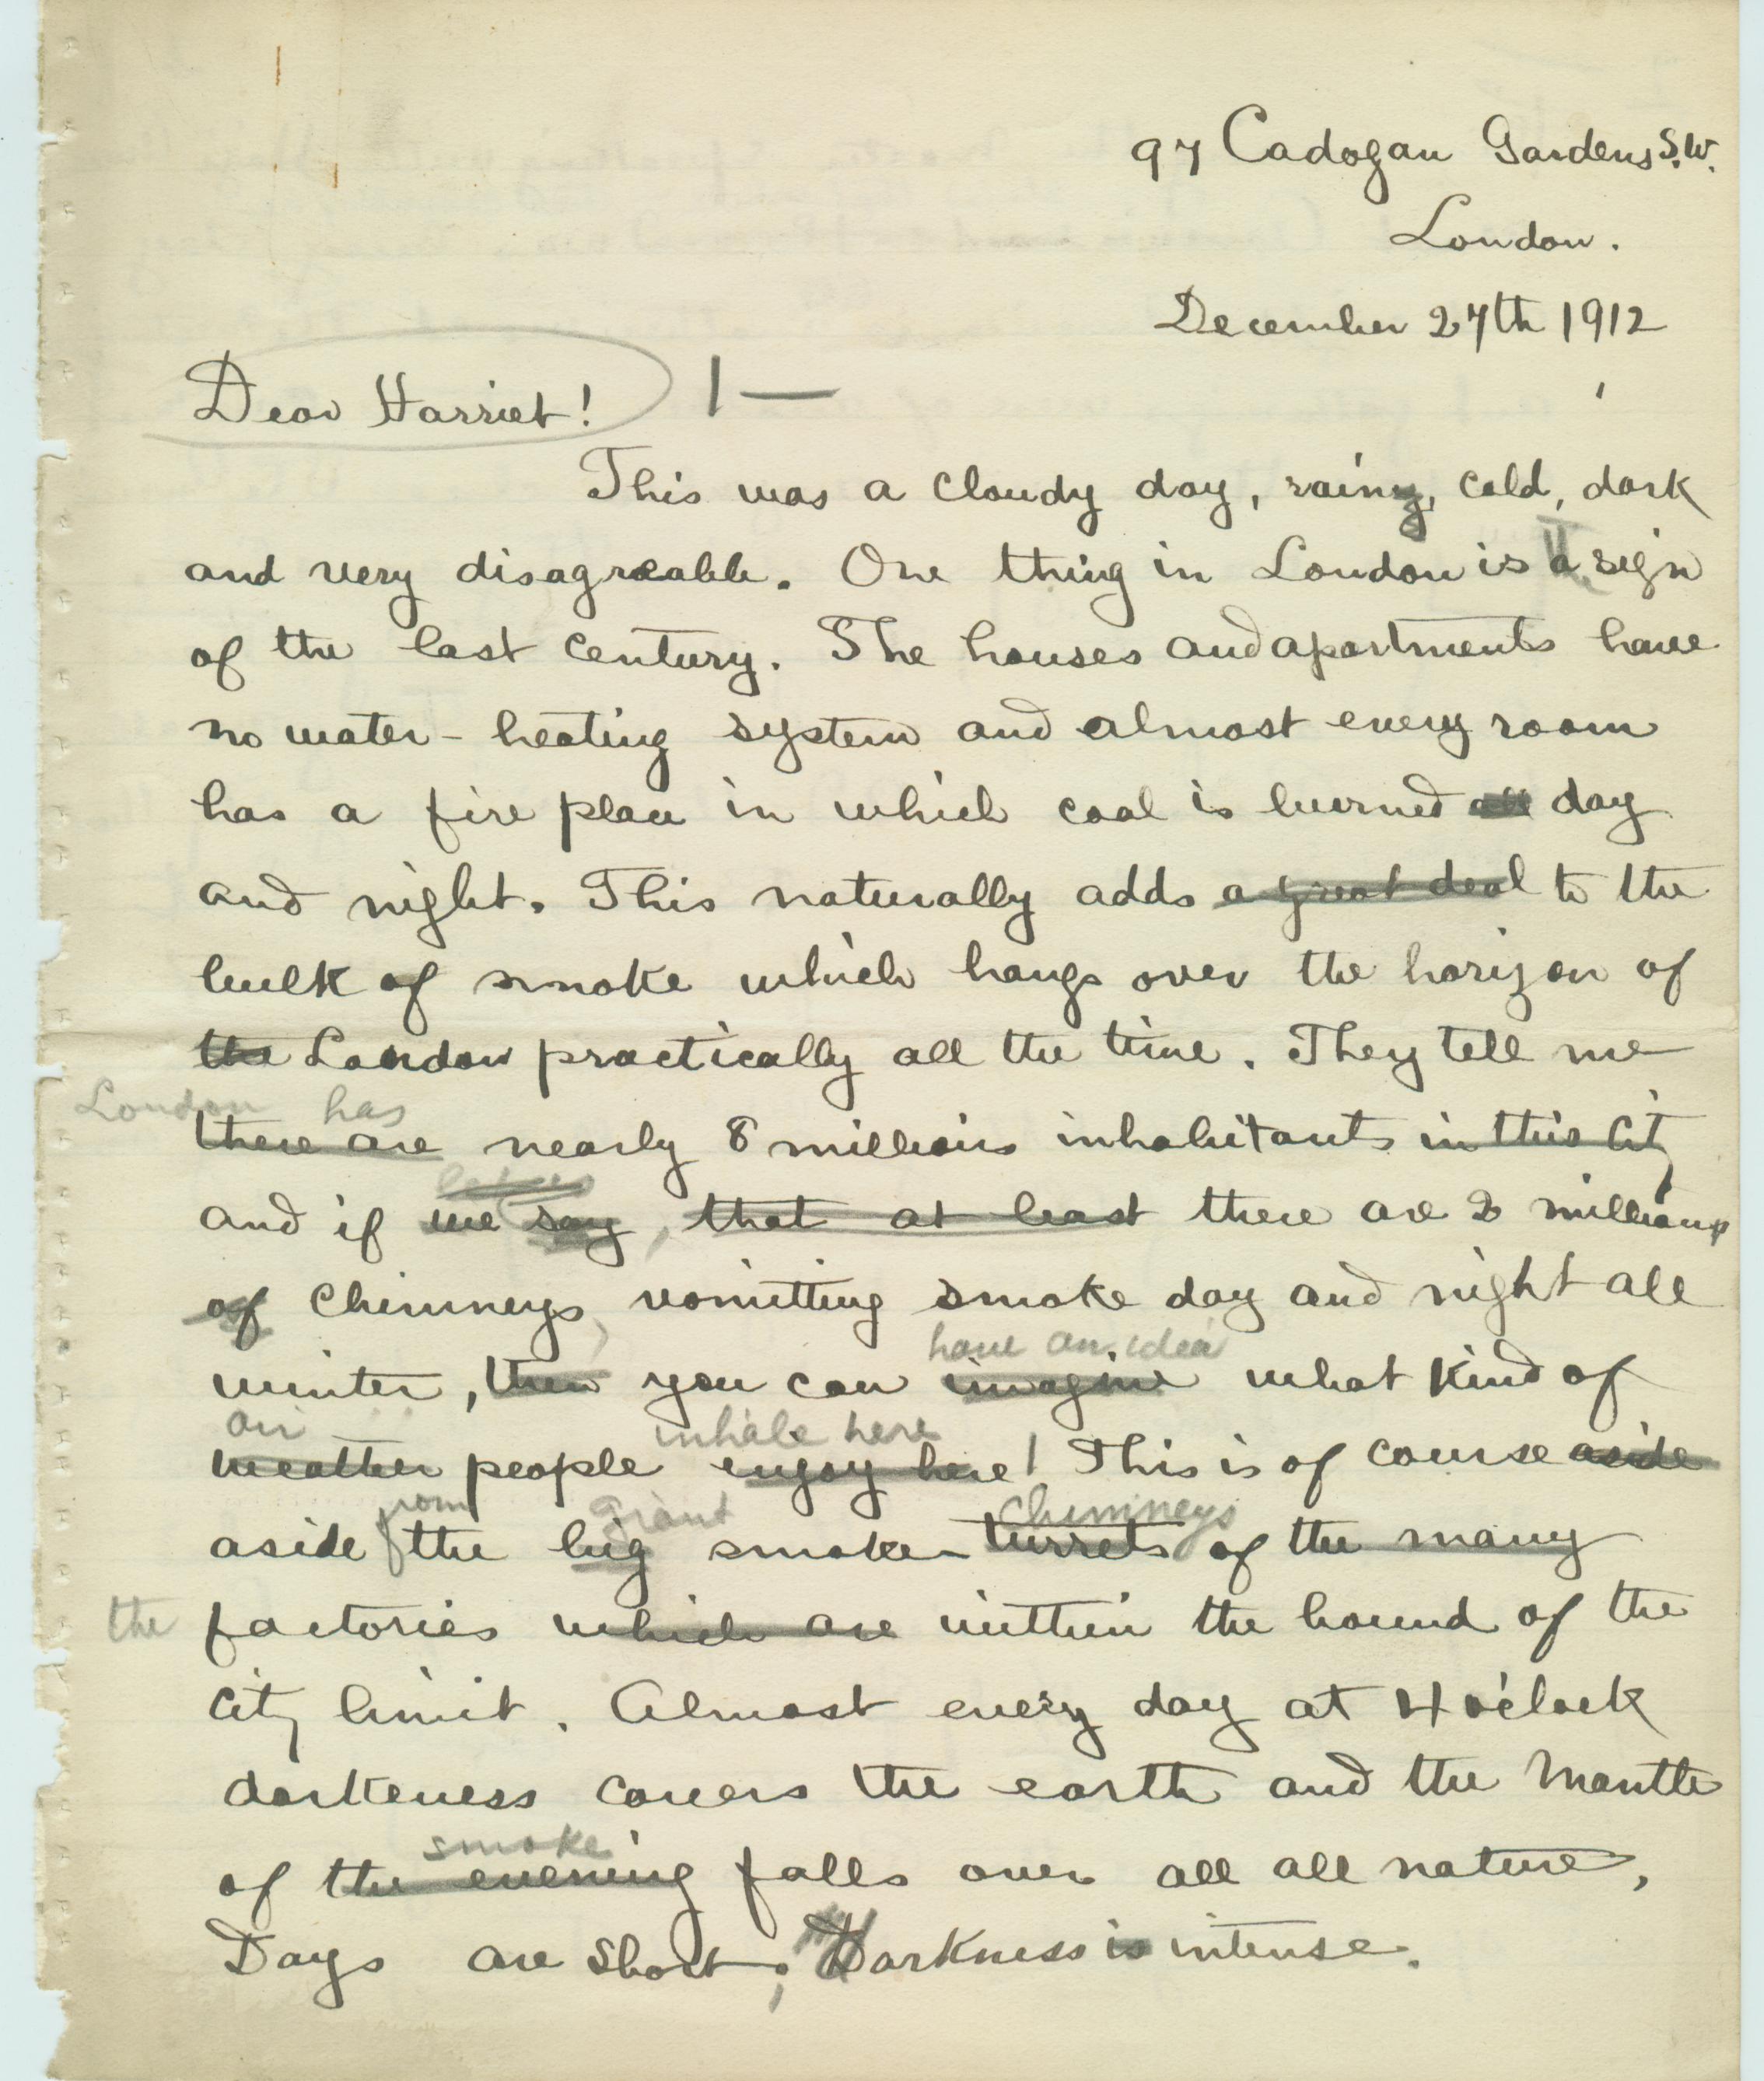 97 Cadogan Gardens S.W.
London.
December 27th 1912
Dear Harriet! 1—
This was a cloudy day, rainy, cold, dark
and very disagreable. One thing in London is a sign
of the last century. The houses and apartments have
no water-heating system and almost every room
has a fire place in which coal is burned all day
and night. This naturally adds a great deal to the
bulk of smoke which hangs over the horizon of
the London practically all the time. They tell me
London has
there are nearly 8 millions inhabitants in this city
let us
and if we say, that at least there are 2 millions
of chimneys, vomitting smoke day and night all
have an idea
winter, then you can imagine what kind of
air inhale here
weather people enjoy here! This is of course aside
from giant chimneys
aside the big smoke-turrets of the many
the factories which are within the bound of the
city limit. Almost every day at 4 o'clock
darkeness covers the earth and the mantle
smoke
of the evening falls over all all nature,
Days are short; Darkness is intense.